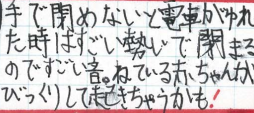 手で閉めないと電車がゆれ
た時はすごい勢いで閉まる
のですごい音。ねている赤ちゃんが
びっくりして起きちゃうかも!